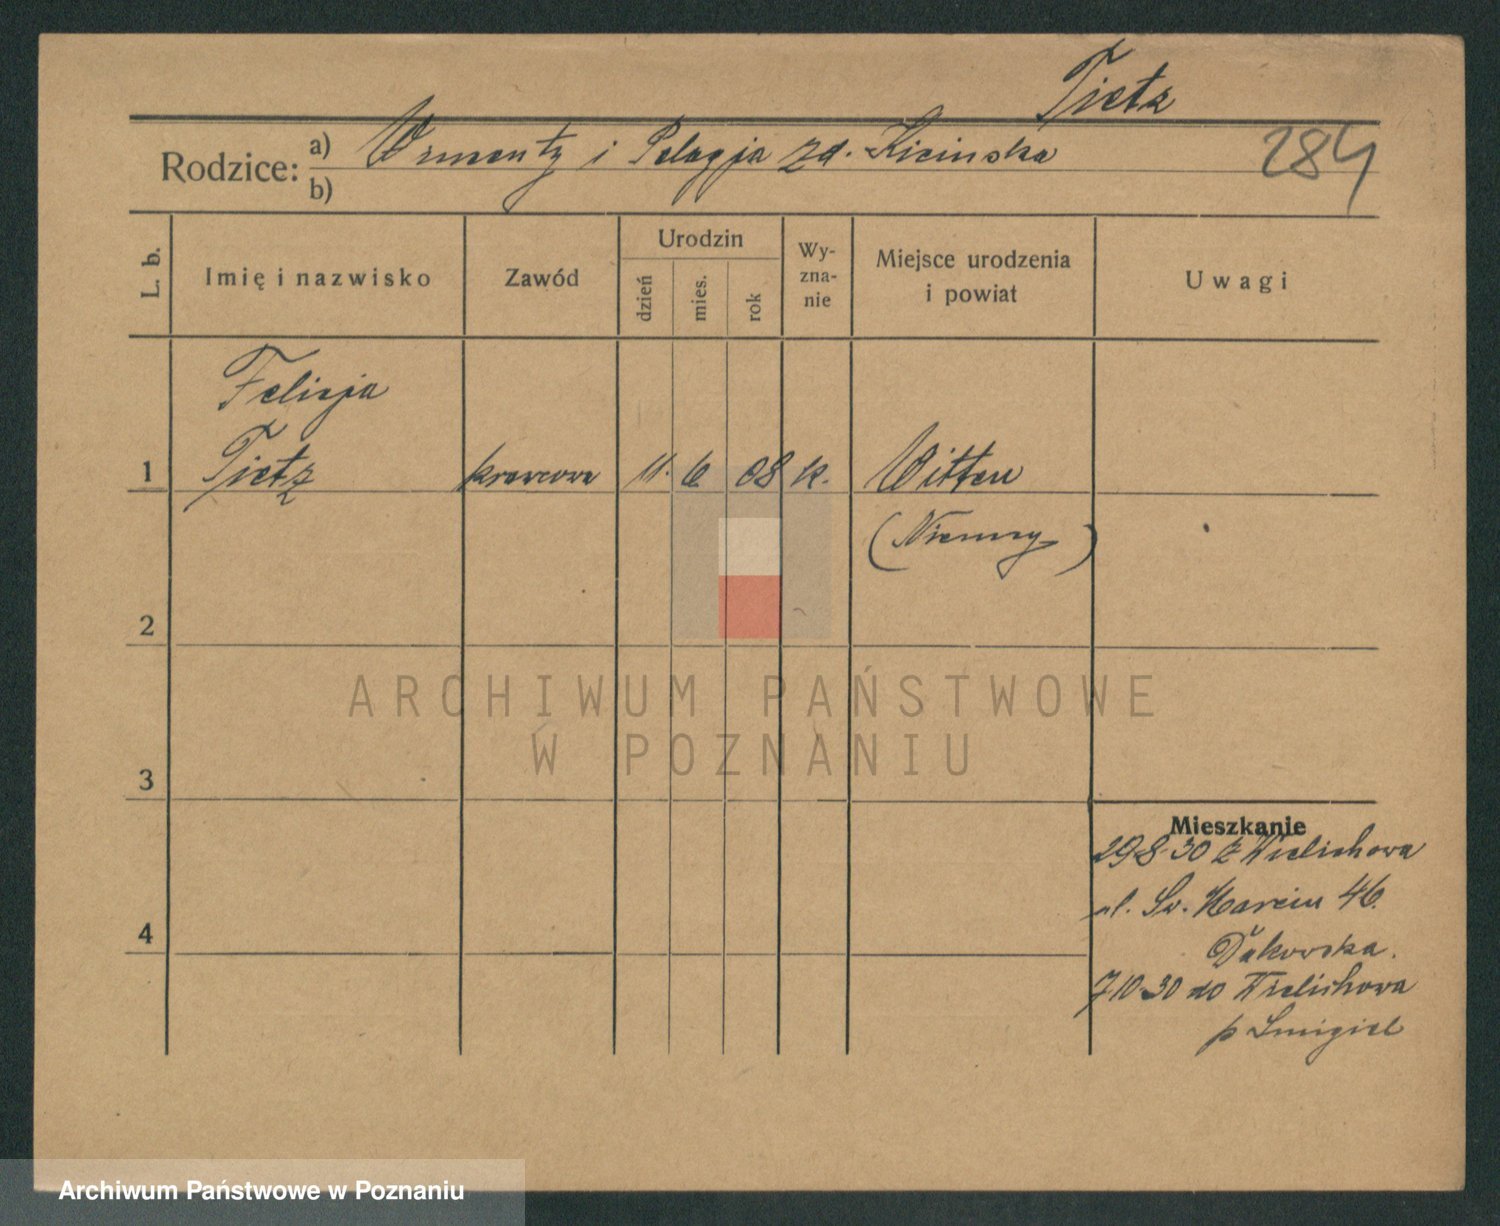 Tietz
284
Rodzice: a) i Pelagja zd. Kicinska
b)
L. b.
Imię i nazwisko
Zawód
Urodzin
dzień
mies.
rok
Wy-
zna-
nie
Miejsce urodzenia
i powiat
Uwagi
Felicja
1 Tietz krawcowa 11. 6 08 k. Witten
(Niemcy)
2
3
4
Mieszkanie
29.8.30 z Wielichowa
ul. Sw. Marcin 46.
7.10.30 do Wielichowa
p Smigiel
ARCHIWUM PAŃSTWOWE
W POZNANIU
Archiwum Państwowe w Poznaniu